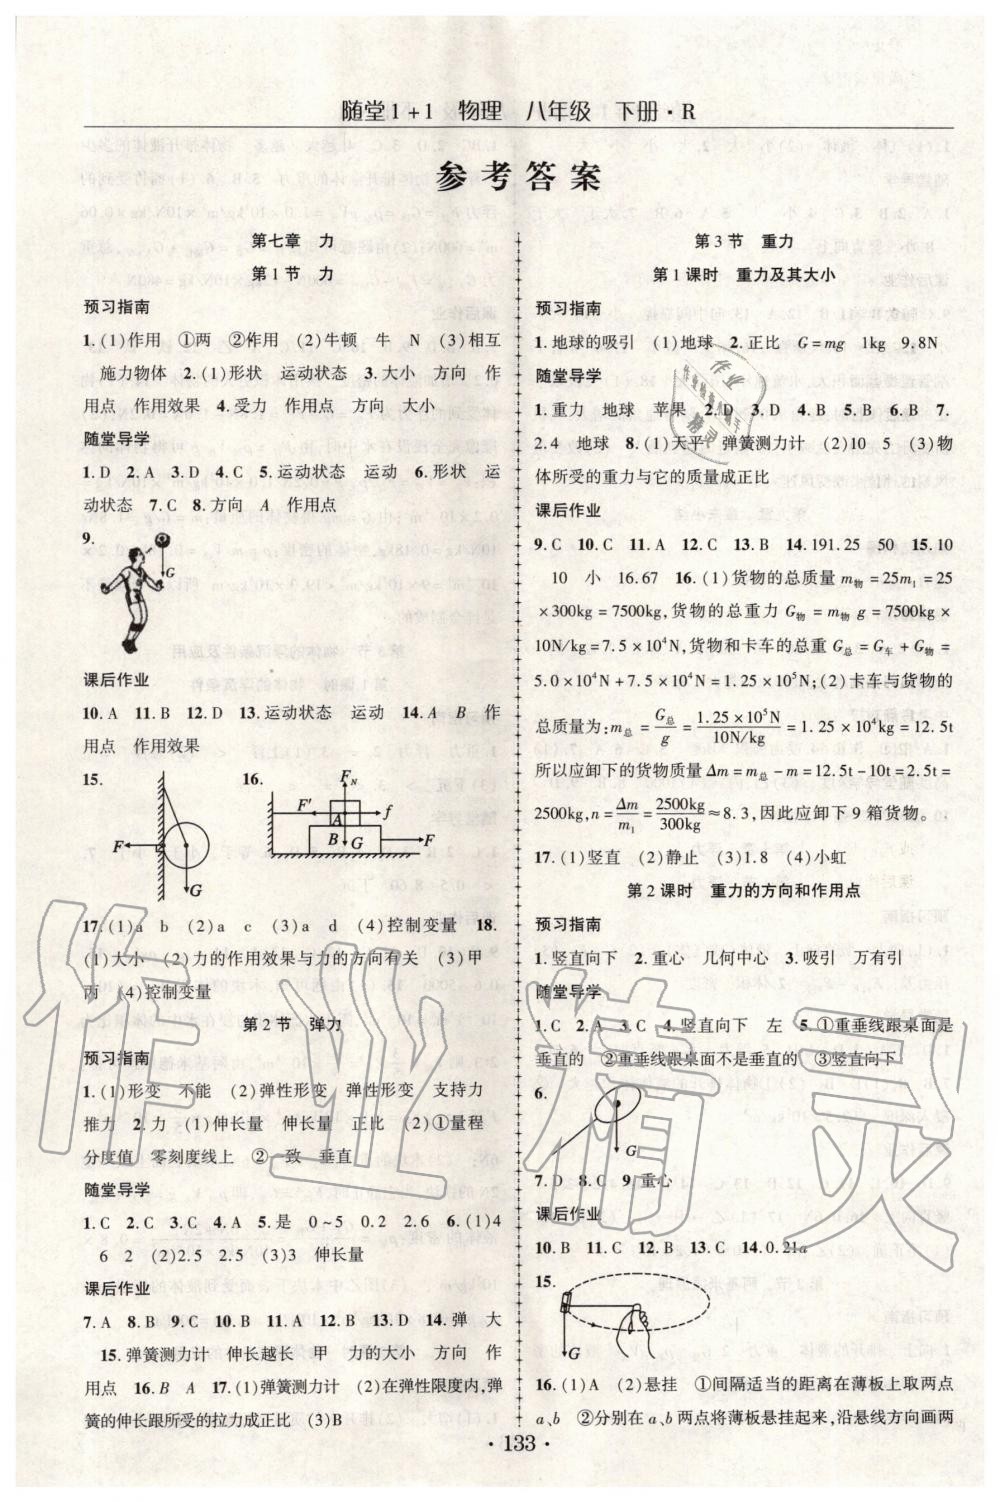 随堂1+1 物理 八年级 下册·R
参考答案
第七章 力
第1节 力
预习指南
1.(1)作用 ①两 ②作用 (2)牛顿 牛 N (3)相互
施力物体 2.(1)形状 运动状态 3.大小 方向 作
用点 作用效果 4.受力 作用点 方向 大小
随堂导学
1.D 2.A 3.D 4.C 5.运动状态 运动 6.形状 运
动状态 7.C 8.方向 A 作用点
9.
G
课后作业
10.A 11.B 12.D 13.运动状态 运动 14.A B 作
用点 作用效果
15.
F
G
16.
F_N
F′
f
A
B
G
F
17.(1)a b (2)a c (3)a d (4)控制变量 18.
(1)大小 (2)力的作用效果与力的方向有关 (3)甲
丙 (4)控制变量
第2节 弹力
预习指南
1.(1)形变 不能 (2)弹性形变 弹性形变 支持力
推力 2.力 (1)伸长量 伸长量 正比 (2)①量程
分度值 零刻度线上 ②一致 垂直
随堂导学
1.C 2.C 3.A 4.A 5.是 0~5 0.2 2.6 6.(1)4
6 2 (2)2.5 2.5 (3)3 伸长量
课后作业
7.A 8.B 9.C 10.B 11.A 12.B 13.D 14.弹 大
15.弹簧测力计 伸长越长 甲 力的大小 方向 作
用点 16.B A 17.(1)弹簧测力计 (2)在弹性限度内,弹
簧的伸长跟所受的拉力成正比 (3)B
第3节 重力
第1课时 重力及其大小
预习指南
1.地球的吸引 (1)地球 2.正比 G=mg 1kg 9.8N
随堂导学
1.重力 地球 苹果 2.D 3.D 4.B 5.B 6.B 7.
2.4 地球 8.(1)天平 弹簧测力计 (2)10 5 (3)物
体所受的重力与它的质量成正比
课后作业
9.C 10.C 11.A 12.C 13.B 14.191.25 50 15.10
10 小 16.67 16.(1)货物的总质量 m物=25m₁=25
×300kg=7500kg,货物的总重力 G物=m物 g=7500kg×
10N/kg=7.5×10⁴N,货物和卡车的总重 G总=G车+G物=
5.0×10⁴N+7.5×10⁴N=1.25×10⁵N;(2)卡车与货物的
总质量为:m总=G总/g=1.25×10⁵N/10N/kg=1.25×10⁴kg=12.5t
所以应卸下的货物质量 Δm=m总-m=12.5t-10t=2.5t=
2500kg,n=Δm/m₁=2500kg/300kg≈8.3,因此应卸下9箱货物。
17.(1)竖直 (2)静止 (3)1.8 (4)小虹
第2课时 重力的方向和作用点
预习指南
1.竖直向下 2.重心 几何中心 3.吸引 万有引力
随堂导学
1.C 2.D 3.C 4.竖直向下 左 5.①重垂线跟桌面是
垂直的 ②重垂线跟桌面不是垂直的 ③竖直向下
6.
G
7.D 8.C 9.重心
课后作业
10.B 11.C 12.B 13.C 14.0.21a
15.
G
16.(1)A (2)悬挂 ①间隔适当的距离在薄板上取两点
a、b ②分别在a、b两点将薄板悬挂起来,沿悬线方向画两
·133·
作业精灵